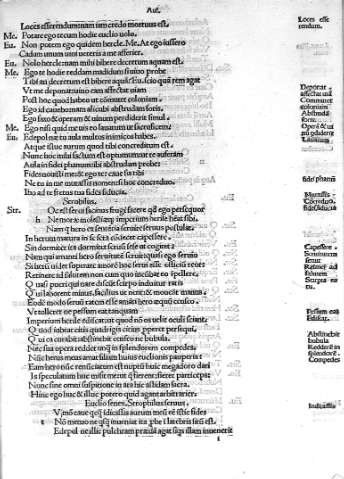 Aul.
Loces esserendum nam iam credo mortuus est.
Me. Potare ego tecum hodie euclio uolo.
Eu. Non potem ego quidem hercle. Me. At ego iussero
Cadum unum uini ueteris a me afferier.
Eu. Nolo hercle nam mihi bibere decretum aquam est.
Me. Ego te hodie reddam madidum si uiuo probe
Tibi cui decretum est bibere aquā. Eu. scio quā rem agat
Vt me deponat uino eam affectat uiam
Post hoc quod habeo ut cōmutet coloniam.
Ego id cauebo nam alicubi abstrudam foris.
Ego faxo & operam & uinum perdiderit simul.
Me. Ego nisi quid me uis eo lauatum ut sacrificem.
Eu. Edepol ne tu aula multos inimicos habes.
Atque istuc aurum quod tibi concreditum est.
Nunc hoc mihi factum est optumum ut te auferam
Aula in fidei phanum ibi abstrudam probe
Fides nouisti me & ego te: caue sis tibi
Ne tu in me mutassis nomen si hoc concreduo.
Ibo ad te fretus tua fides fiducia.
Strobilus.
Str. Oc est serui facinus frugi facere qđ ego persequor
h Ne moræ molestiæq; imperium herile habeat sibi.
Nam q hero ex sententia seruire seruus postulat.
In herum matura in se sera condecet capessere.
Sin dormitet ita dormitet seruū sese ut cogitet
Nam qui amanti hero seruitutē seruit quasi ego seruio
Si herū uidet superare amorē hoc serui esse officiū reor
Retinere ad salutem non eum quo incumbat eo īpellere.
Quasi pueri qui nare discūt scirpea induitur ratis
Qui laborent minus, facilius ut nent & moueāt manus.
Eodē modo seruū ratem esse amāti hero æquū censeo.
Vt tolleret ne pessum eat tanquam
Imperium herile ediscat ut quod nō os uelit oculi sciant.
Quod iubeat citis quadrigis citius pperet persequi,
Qui ea curabit abstinebit censio ne bubula.
Nec sua opera rediget unq̃ in splendorem compedes.
Nūc herus meus amat filiam huius euclionis pauperis
Eam hero nūc renūciatum ē nuptū huic megadoro dari
Is speculatum huc misit me ut q̃ fierent fieret particeps
Nunc sine omni suspitione in ara hic assidam sacra.
Hinc ego huc & illuc potero quid agant arbitrarier.
Euclio senex. Strobilus seruus.
V modo caue cuiq̃ idicassis aurum meū eē istic fides
t Nō metuo ne q̃sq̃ inueniat ita ƥbe ī latebris sitū est.
Edepol ne illic pulchram prædā agat siq̃s illam inuenerit
Loces esse
rendum.
Deponat
affectat uiā
Cōmutet
coloniam
Abstrudā
foris.
Operā & ui
nū pdiderit
Lauatum
fidei phanū
Mutassis
Concreduo.
fides fiducia
Capessere
Seruitutem
seruit
Retinere ad
salutem
Scirpea ra
tis.
Pessum eat
Ediscat.
Abstinebit
bubula
Redderē in
splendorē
Compedes
Indicassis